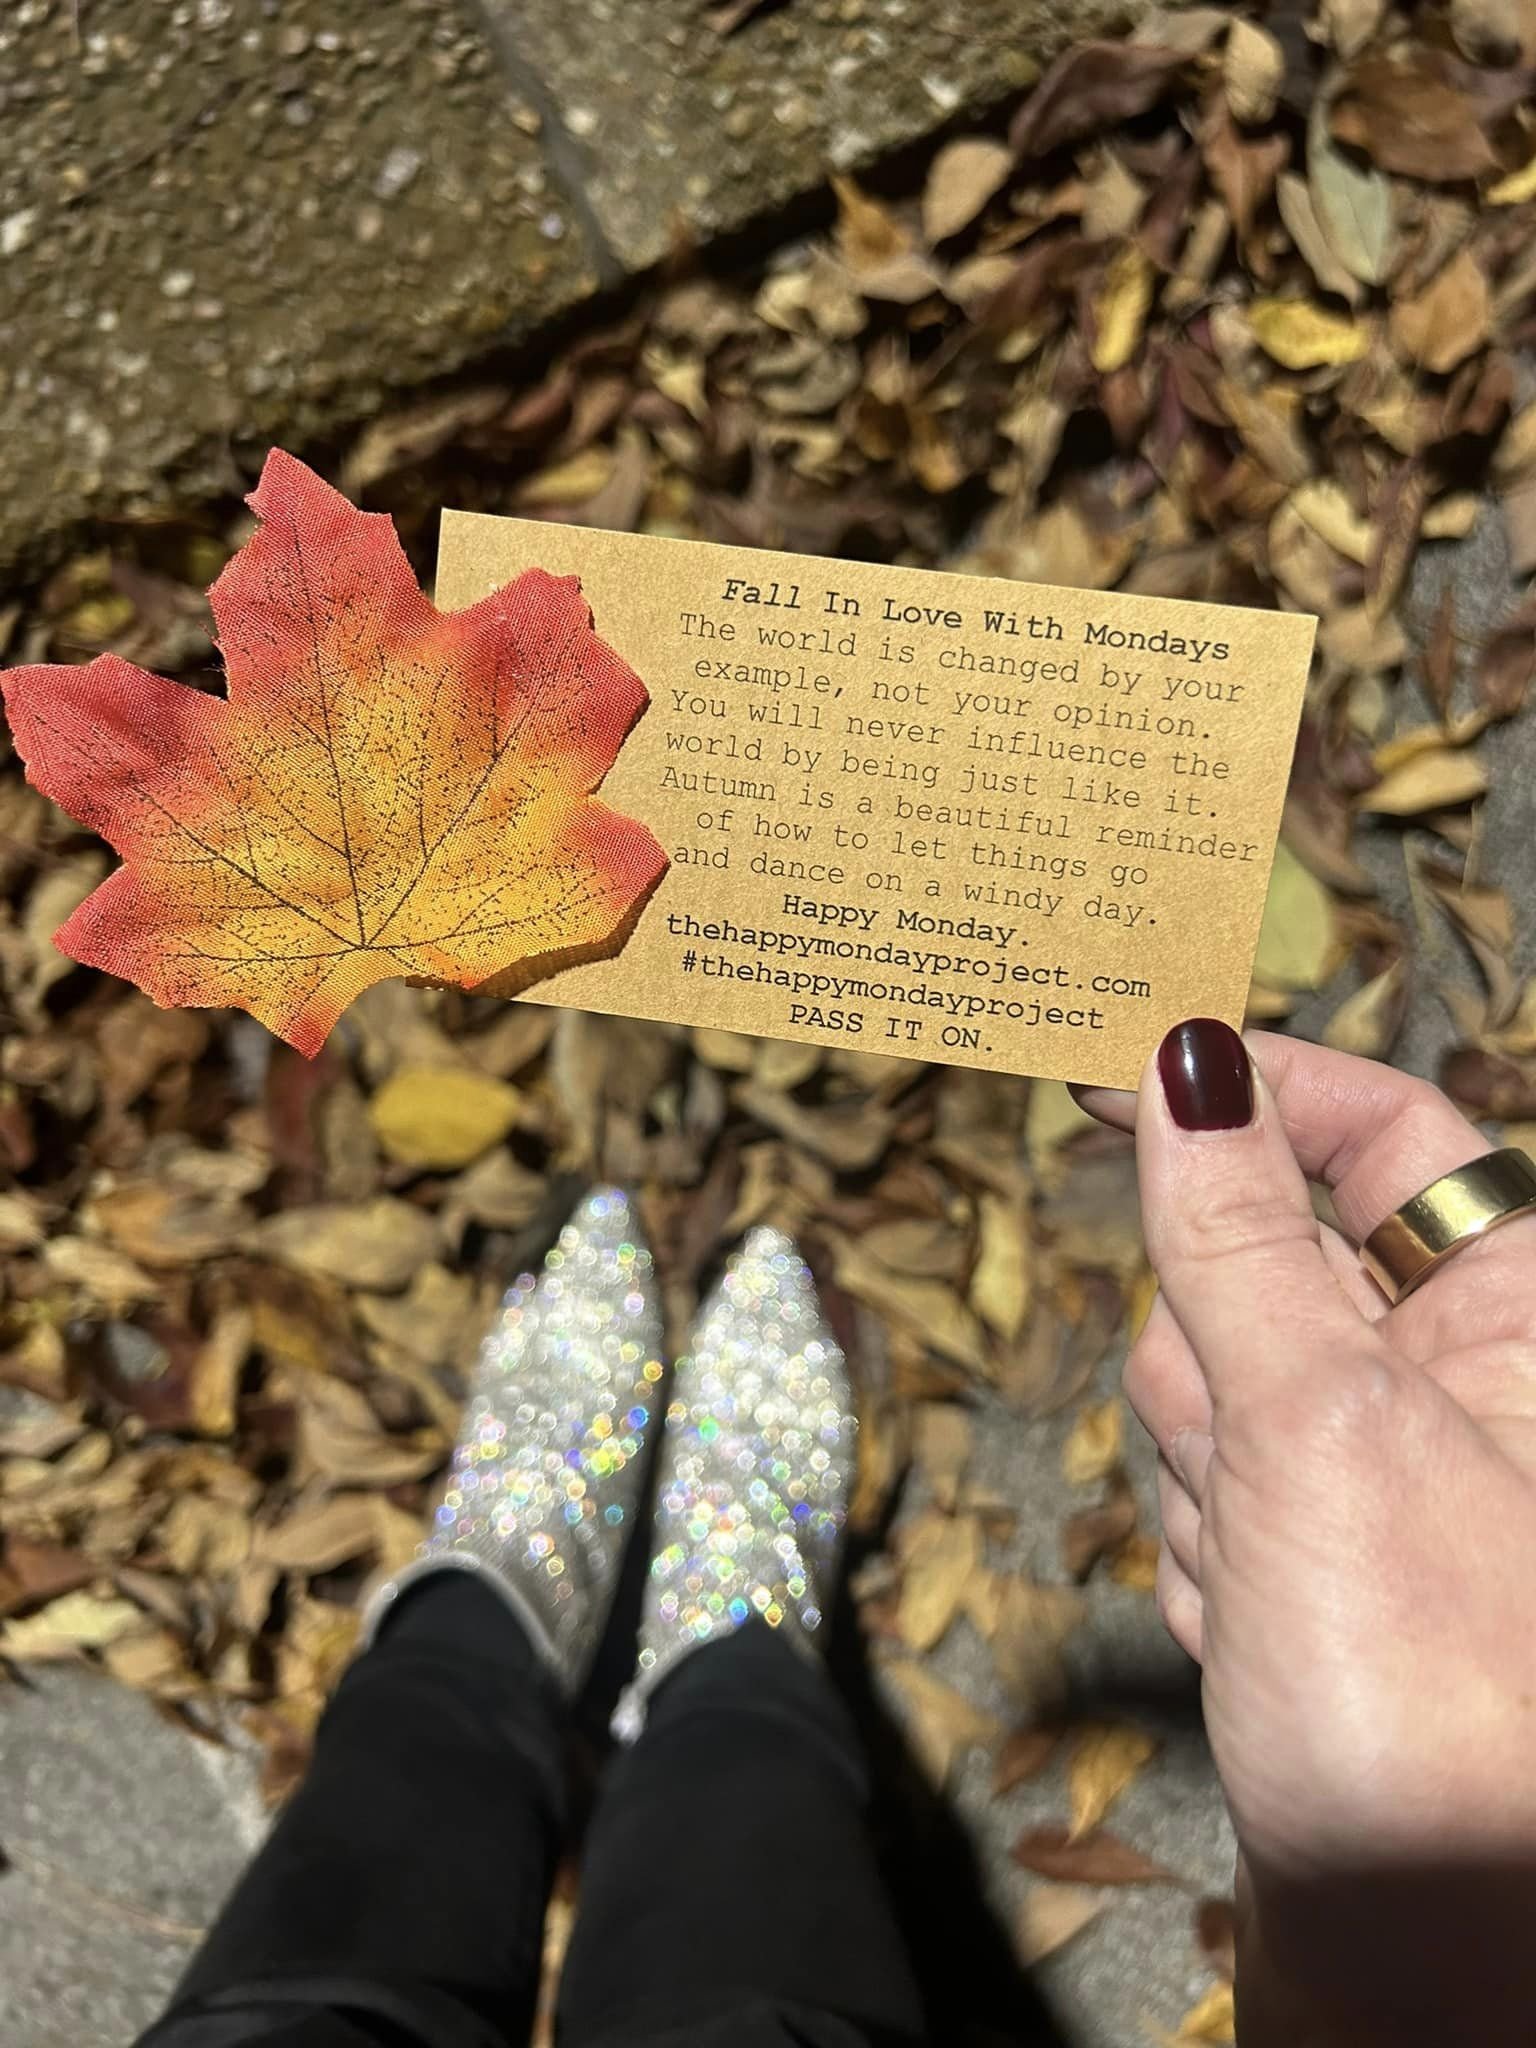 Fall In Love With Mondays
The world is changed by your
example, not your opinion.
You will never influence the
world by being just like it.
Autumn is a beautiful reminder
of how to let things go
and dance on a windy day.
Happy Monday.
thehappymondayproject.com
#thehappymondayproject
PASS IT ON.